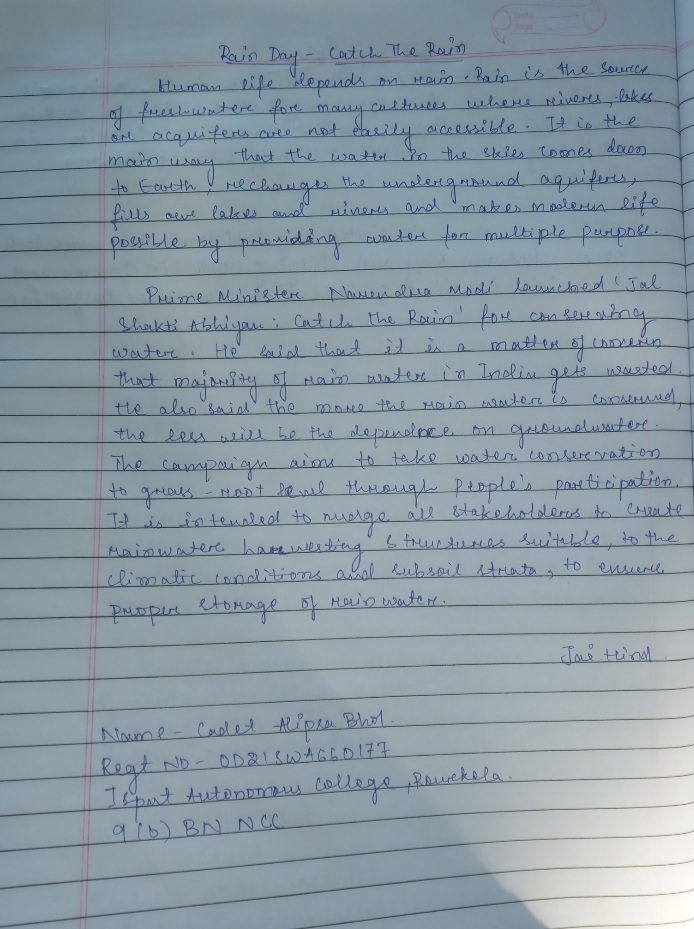 Rain Day - Catch The Rain
Human life depends on rain. Rain is the source
of freshwater for many cultures where rivers, lakes
or acquifers are not easily accessible. It is the
main way that the water in the skies comes down
to Earth, rechanges the underground aquifers,
fills our lakes and rivers and makes modern life
possible by providing water for multiple purpose.
Prime Minister Narendra Modi launched 'Jal
Shakti Abhiyan: Catch the Rain' for conserving
water. He said that it is a matter of concern
that majority of rain water in India gets wasted.
He also said the more the rain water is conserved,
the less will be the dependnce on groundwater.
The campaign aims to take water conservation
to grass-root level through People's participation.
It is intended to nudge all stakeholders to create
rainwater harvesting structures suitable, to the
climatic conditions and subsoil strata, to ensure
proper storage of rain water.
Jai Hind
Name - Cadet Alipsa Bhol.
Regt NO - OD21SWA660177
Ispat Autonomous College, Rourkela.
9(b) BN NCC